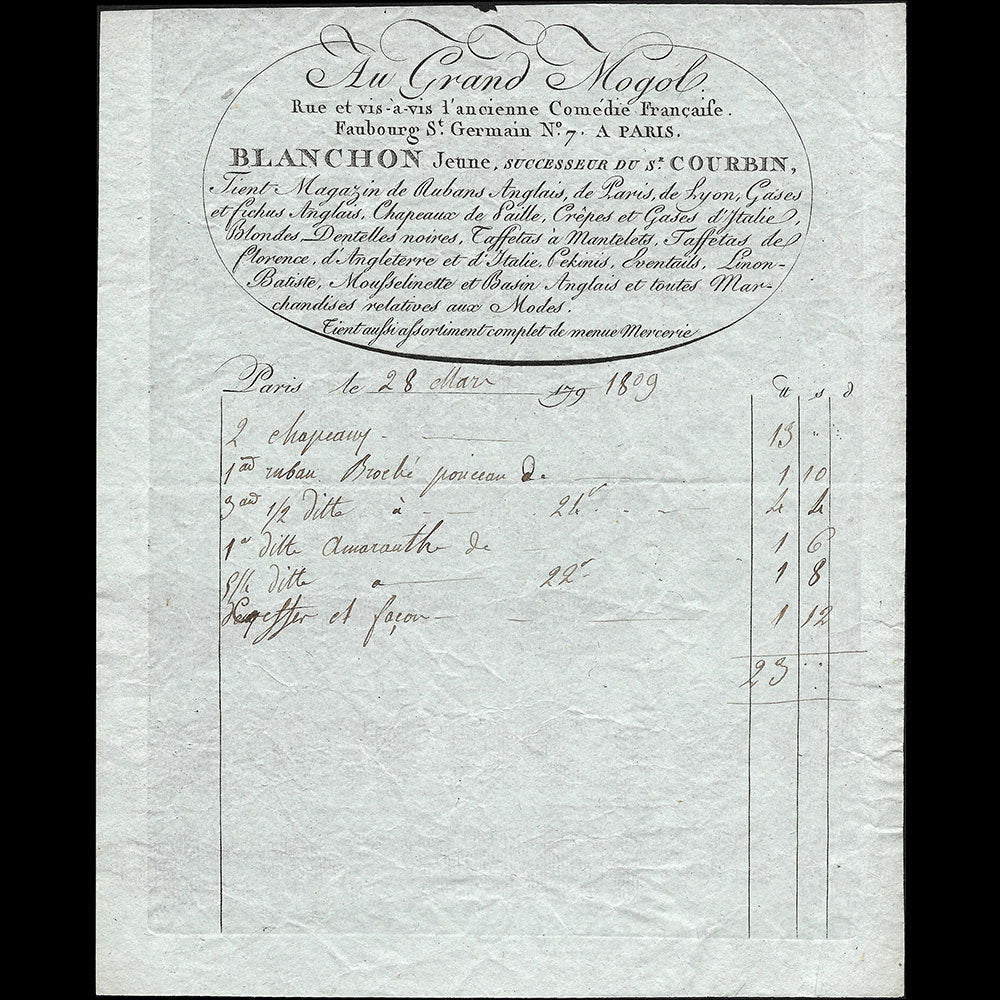 Au Grand Mogol.
Rue et vis-à-vis l'ancienne Comédie Françaiſe.
Faubourg St. Germain No. 7. A PARIS.
BLANCHON Jeune, SUCCESSEUR DU Sr. COURBIN,
Tient Magazin de Rubans Anglais, de Paris, de Lyon, Gases
et fichus Anglais, Chapeaux de Paille, Crêpes et Gases d'Italie,
Blondes, Dentelles noires, Taffetas à Mantelets, Taffetas de
florence, d'Angleterre et d'Italie, Pékinis, Eventails, Linon-
Batiste, Mouſselinette et Basin Anglais et toutes Mar-
chandises relatives aux Modes.
Tient auſsi aſsortiment complet de menue Mercerie
Paris le 28 Mars 179 1809
tt s d
2 chapeaux - 13 "
1 au ruban Broché ponceau de 1 10
3 au 1/2 ditte à 24 s 4 4
1 a ditte Amaranthe de 1 6
5/4 ditte a 22 s 1 8
et façon 1 12
23 "